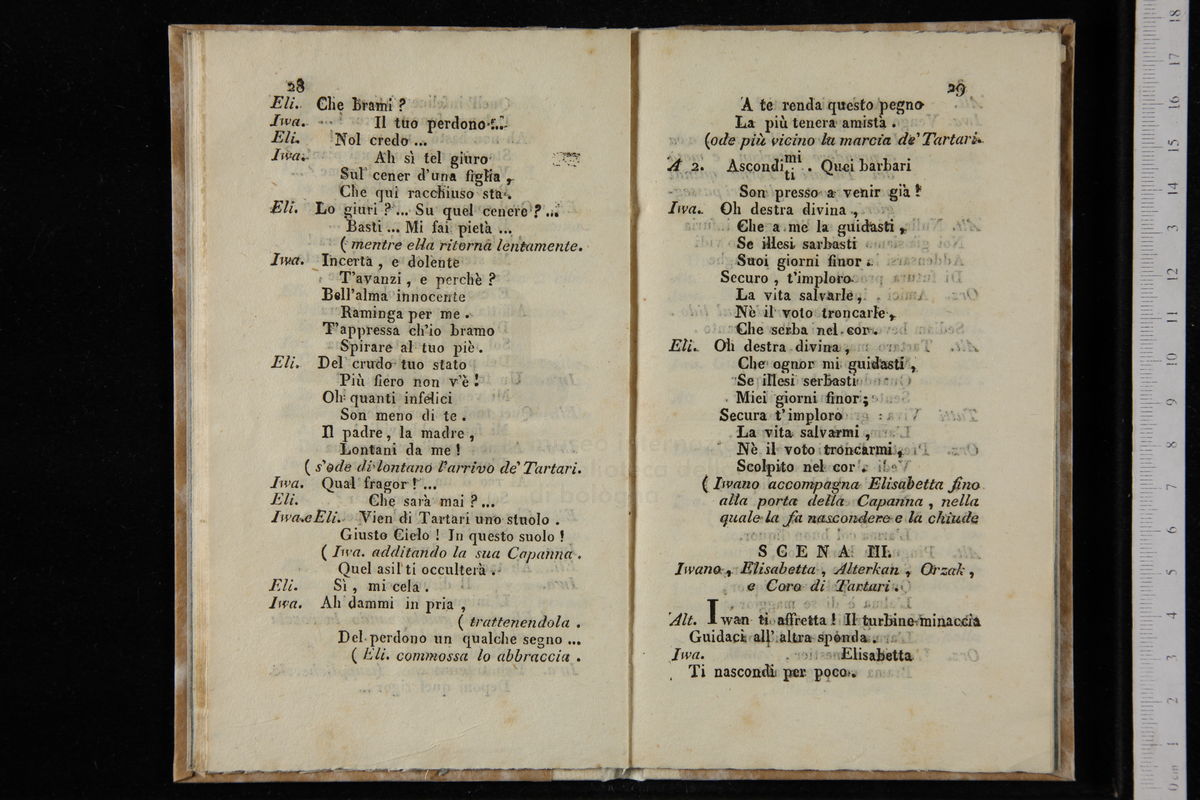 28
Eli. Che brami ?
Iwa. Il tuo perdono ...
Eli. Nol credo ...
Iwa. Ah sì tel giuro
Sul cener d'una figlia ,
Che qui racchiuso sta .
Eli. Lo giuri ? ... Su quel cenere ? ...
Basti ... Mi fai pietà ...
( mentre ella ritorna lentamente.
Iwa. Incerta , e dolente
T'avanzi , e perchè ?
Bell'alma innocente
Raminga per me .
T'appressa ch'io bramo
Spirare al tuo piè .
Eli. Del crudo tuo stato
Più fiero non v'è !
Oh quanti infelici
Son meno di te .
Il padre , la madre ,
Lontani da me !
( s'ode di lontano l'arrivo de' Tartari.
Iwa. Qual fragor ! ...
Eli. Che sarà mai ? ...
Iwa.e Eli. Vien di Tartari uno stuolo .
Giusto Cielo ! In questo suolo !
( Iwa. additando la sua Capanna .
Quel asil ti occulterà .
Eli. Sì , mi cela .
Iwa. Ah dammi in pria ,
( trattenendola .
Del perdono un qualche segno ...
( Eli. commossa lo abbraccia .
29
A te renda questo pegno
La più tenera amistà .
(ode più vicino la marcia de' Tartari.
A 2. Ascondi mi ti . Quei barbari
Son presso a venir già !
Iwa. Oh destra divina ,
Che a me la guidasti ,
Se illesi sarbasti
Suoi giorni finor .
Securo , t'imploro
La vita salvarle ,
Nè il voto troncarle ,
Che serba nel cor .
Eli. Oh destra divina ,
Che ognor mi guidasti ,
Se illesi serbasti
Miei giorni finor ;
Secura t'imploro
La vita salvarmi ,
Nè il voto troncarmi ,
Scolpito nel cor .
( Iwano accompagna Elisabetta fino
alla porta della Capanna , nella
quale la fa nascondere e la chiude
SCENA III.
Iwano , Elisabetta , Alterkan , Orzak ,
e Coro di Tartari .
Alt. Iwan ti affretta ! Il turbine minaccia
Guidaci all' altra sponda .
Iwa. Elisabetta
Ti nascondi per poco .